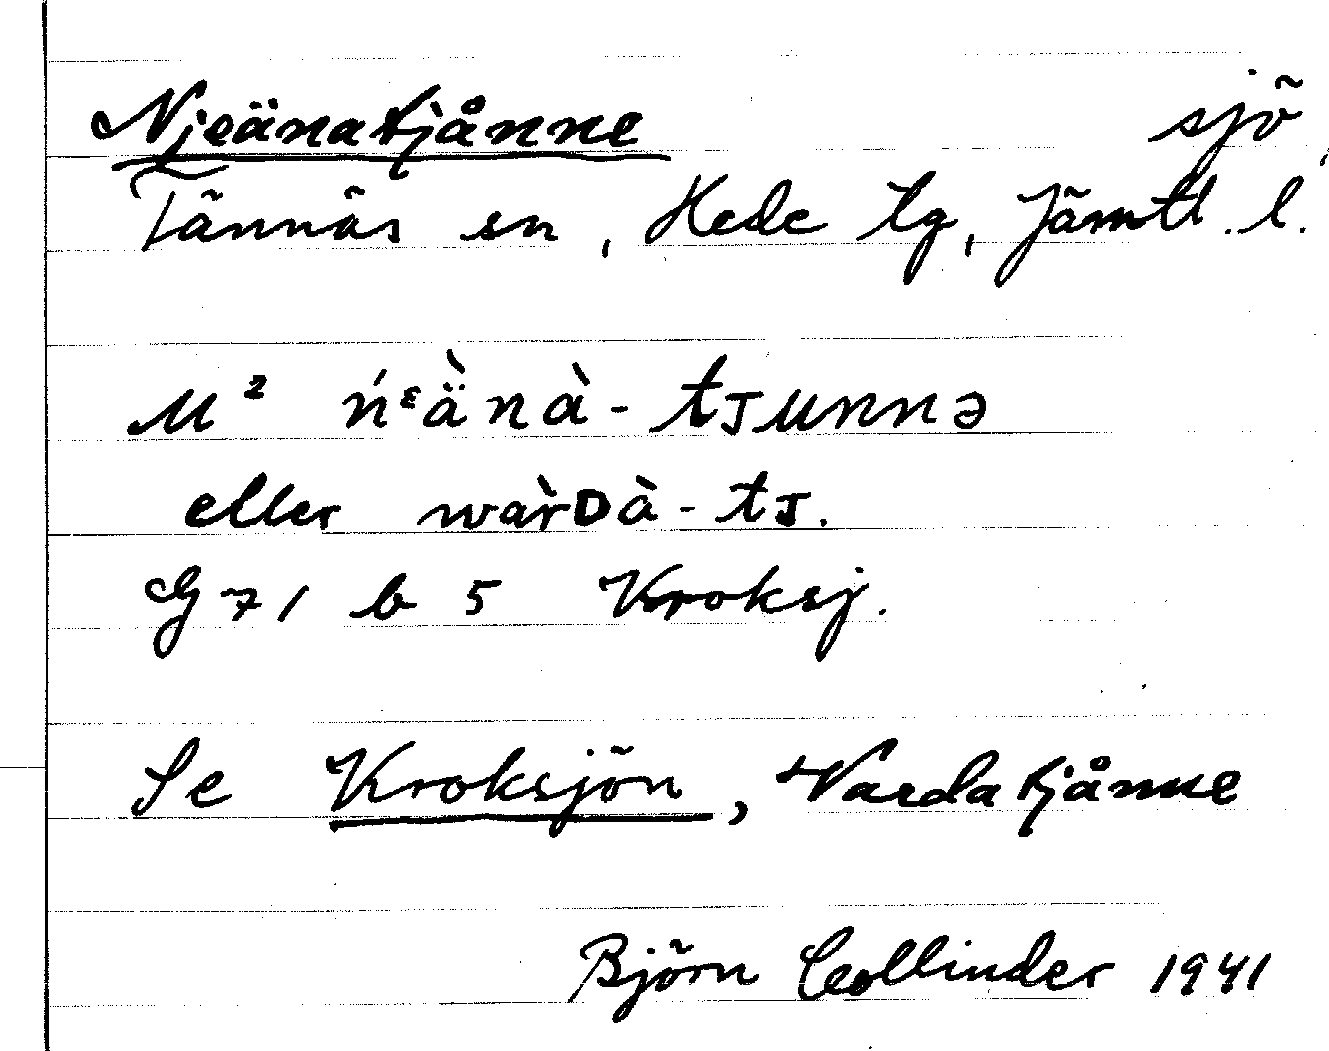 Njeänatjånne sjö
Tännäs sn, Hede tg, Jämtl. l.
M² ń<sup>ε</sup>ä̀nà-tᴊunnə
eller wàrᴅà-tᴊ.
G 71 b 5 Kroksj.
Se Kroksjön, Vardatjånne
Björn Collinder 1941